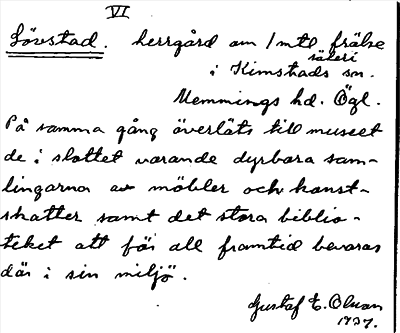 VI
Lövstad. herrgård om 1 mtl frälse
säteri
i Kimstads sn.
Memmings hd. Ögl.
På samma gång överläts till museet
de i slottet varande dyrbara sam-
lingarna av möbler och konst-
skatter samt det stora biblio-
teket att för all framtid bevaras
där i sin miljö.
Gustaf E. Olsson
1937.